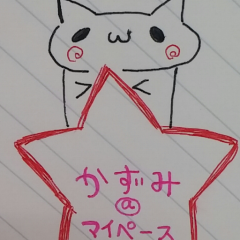 かずみ
@
マイペース